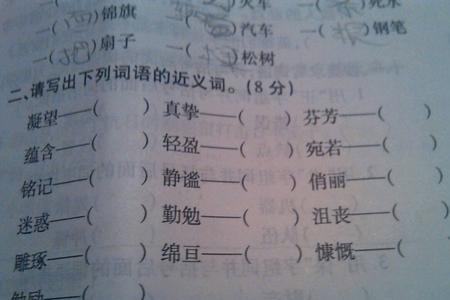 一( )锦旗 一( )火车 一( )死水
一( )扇子 一( )汽车 一( )钢笔
一( )松树
二、请写出下列词语的近义词。(8分)
凝望——( ) 真挚——( ) 芬芳——( )
蕴含——( ) 轻盈——( ) 宛若——( )
铭记——( ) 静谧——( ) 俏丽——( )
迷惑——( ) 勤勉——( ) 沮丧——( )
雕琢——( ) 绵亘——( ) 慷慨——(
勉励——(